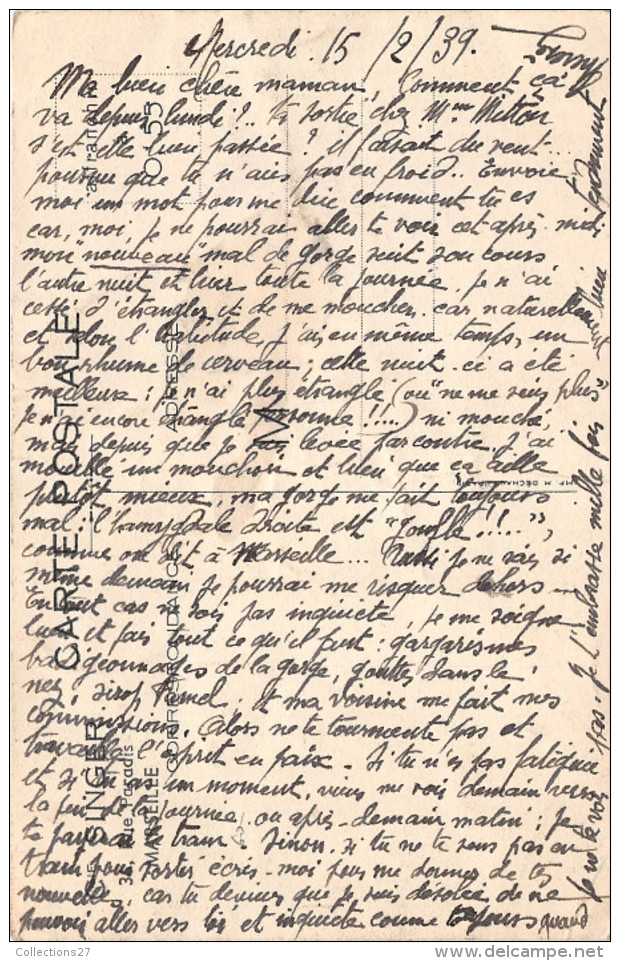 Mercredi 15/2/39.
Ma bien chère maman, Comment ça
va depuis lundi?.. Ta sortie chez Mme Mitton
s'est elle bien passée? il faisait du vent...
pourvu que tu n'aies pas eu froid.. Envoie
moi un mot pour me dire comment tu es
car, moi, je ne pourrai aller te voir cet après-midi
mon "nouveau" mal de gorge suit son cours
l'autre nuit et hier toute la journée je n'ai
cessé d'étrangler et de me moucher, car naturellement
et selon l'habitude, j'ai eu en même temps, un
bon rhume de cerveau; cette nuit-ci a été
meilleure: je n'ai plus étranglé (ou "ne me suis plus"
je n'ai encore étranglé personne!!...) ni mouché,
mais depuis que je suis levée par contre j'ai
mouillé un mouchoir et bien que ça aille
plutôt mieux, ma gorge me fait toujours
mal: l'hamygdale droite est "gonfle!!...",
comme on dit à Marseille... Aussi je ne sais si
même demain je pourrai me risquer dehors...
En tout cas ne sois pas inquiète, je me soigne
bien et fais tout ce qu'il faut: gargarismes
badigeonnages de la gorge, gouttes dans le
nez, sirop Famel; et ma voisine me fait mes
commissions. Alors ne te tourmente pas et
travaille l'esprit en paix. Si tu n'es pas fatiguée
et si tu as un moment, viens me voir demain vers
la fin de la journée, ou après-demain matin; je
te payerai le tram. Sinon, si tu ne te sens pas en
train pour sortir écris-moi pour me donner de tes
nouvelles, car tu devines que je suis désolée de ne
pouvoir aller vers toi et inquiète comme toujours quand
je ne te vois pas. Je t'embrasse mille fois bien tendrement
CARTE POSTALE
CORRESPONDANCE
ADRESSE
M
Affranchir
0.55
CIE SINGER
Rue Paradis
MARSEILLE
Collections27